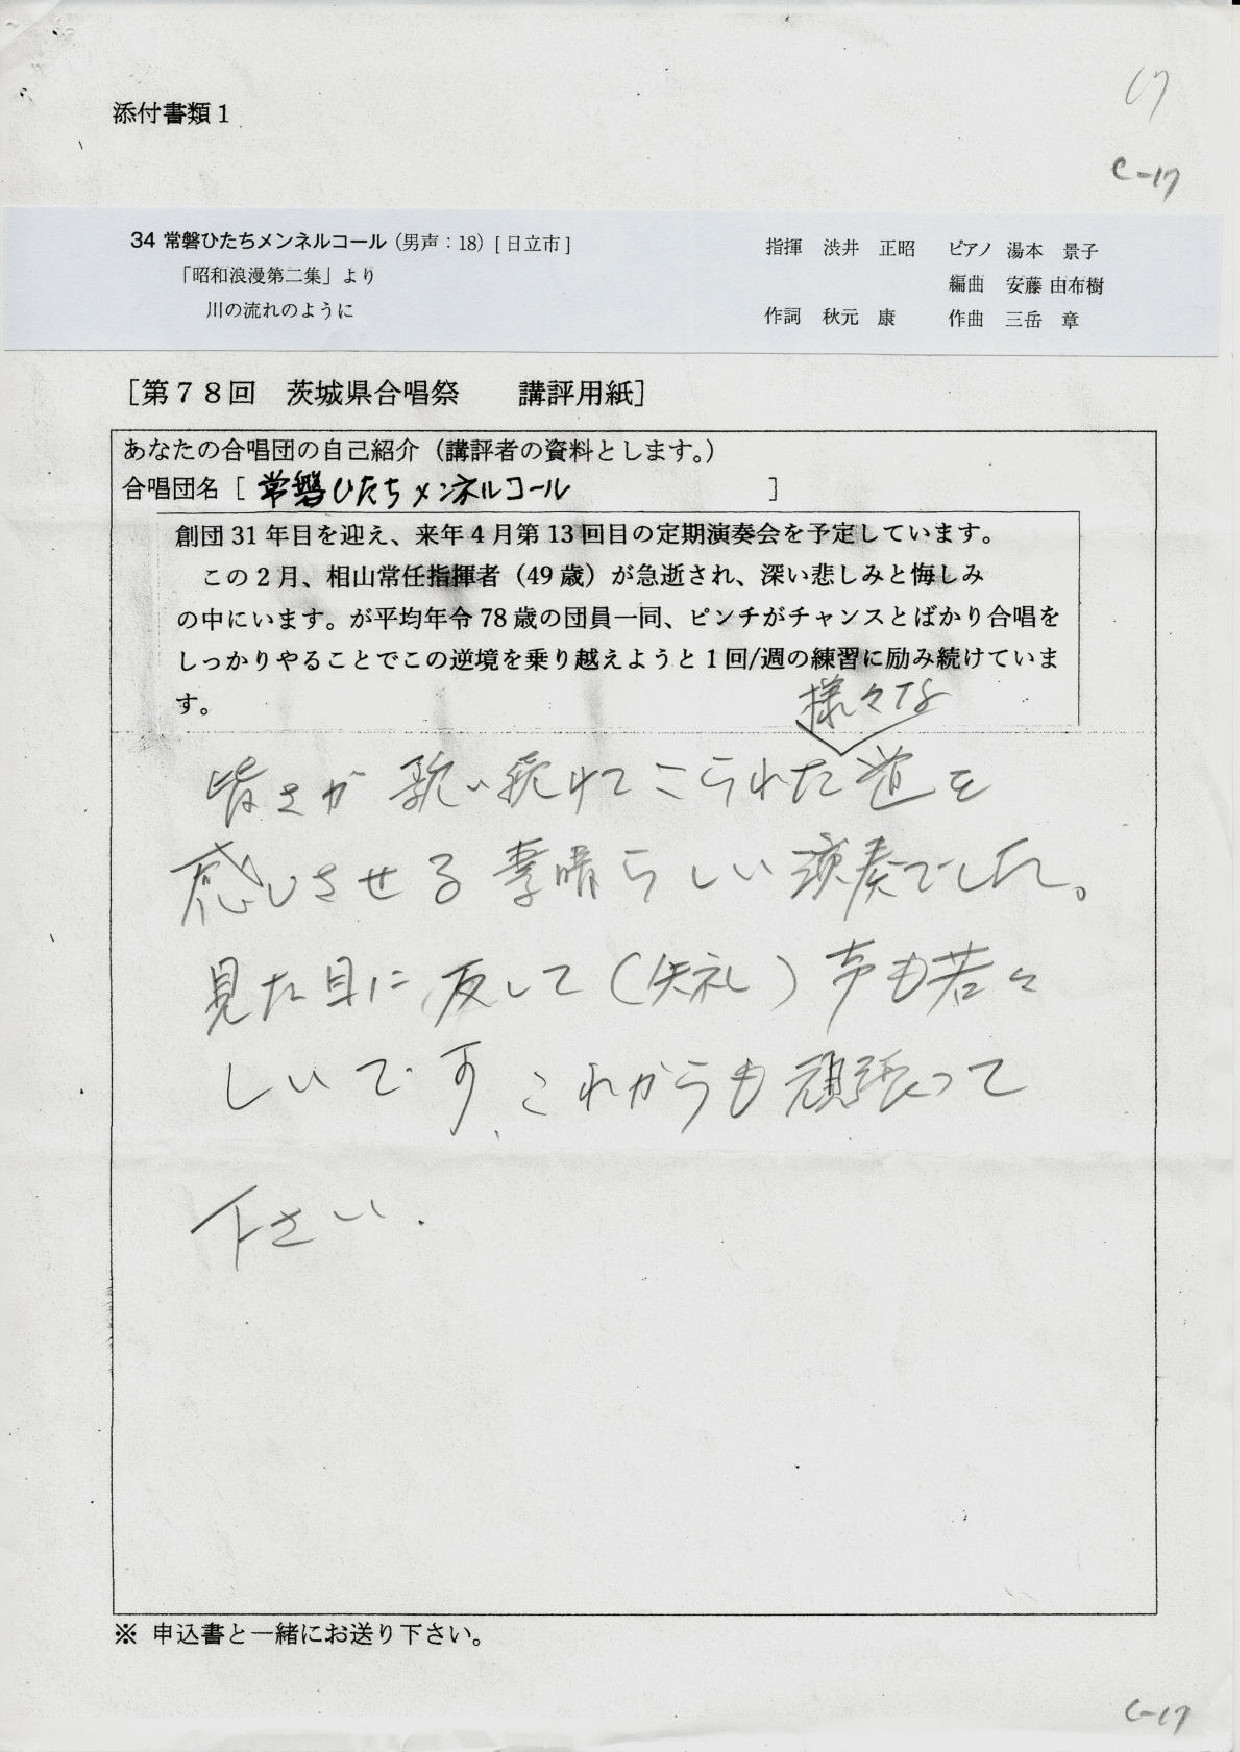 17
添付書類1
C-17
34 常磐ひたちメンネルコール(男声:18)[日立市] 指揮 渋井 正昭 ピアノ 湯本 景子
「昭和浪漫第二集」より 編曲 安藤 由布樹
川の流れのように 作詞 秋元 康 作曲 三岳 章
[第78回 茨城県合唱祭 講評用紙]
あなたの合唱団の自己紹介(講評者の資料とします。)
合唱団名[常磐ひたちメンネルコール]
創団31年目を迎え、来年4月第13回目の定期演奏会を予定しています。
この2月、相山常任指揮者(49歳)が急逝され、深い悲しみと悔しみ
の中にいます。が平均年令78歳の団員一同、ピンチがチャンスとばかり合唱を
しっかりやることでこの逆境を乗り越えようと1回/週の練習に励み続けていま
す。
様々な
皆さまが歌い続けてこられた道を
感じさせる素晴らしい演奏でした。
見た目に反して(失礼)声も若々
しいです、これからも頑張って
下さい.
※ 申込書と一緒にお送り下さい。
C-17